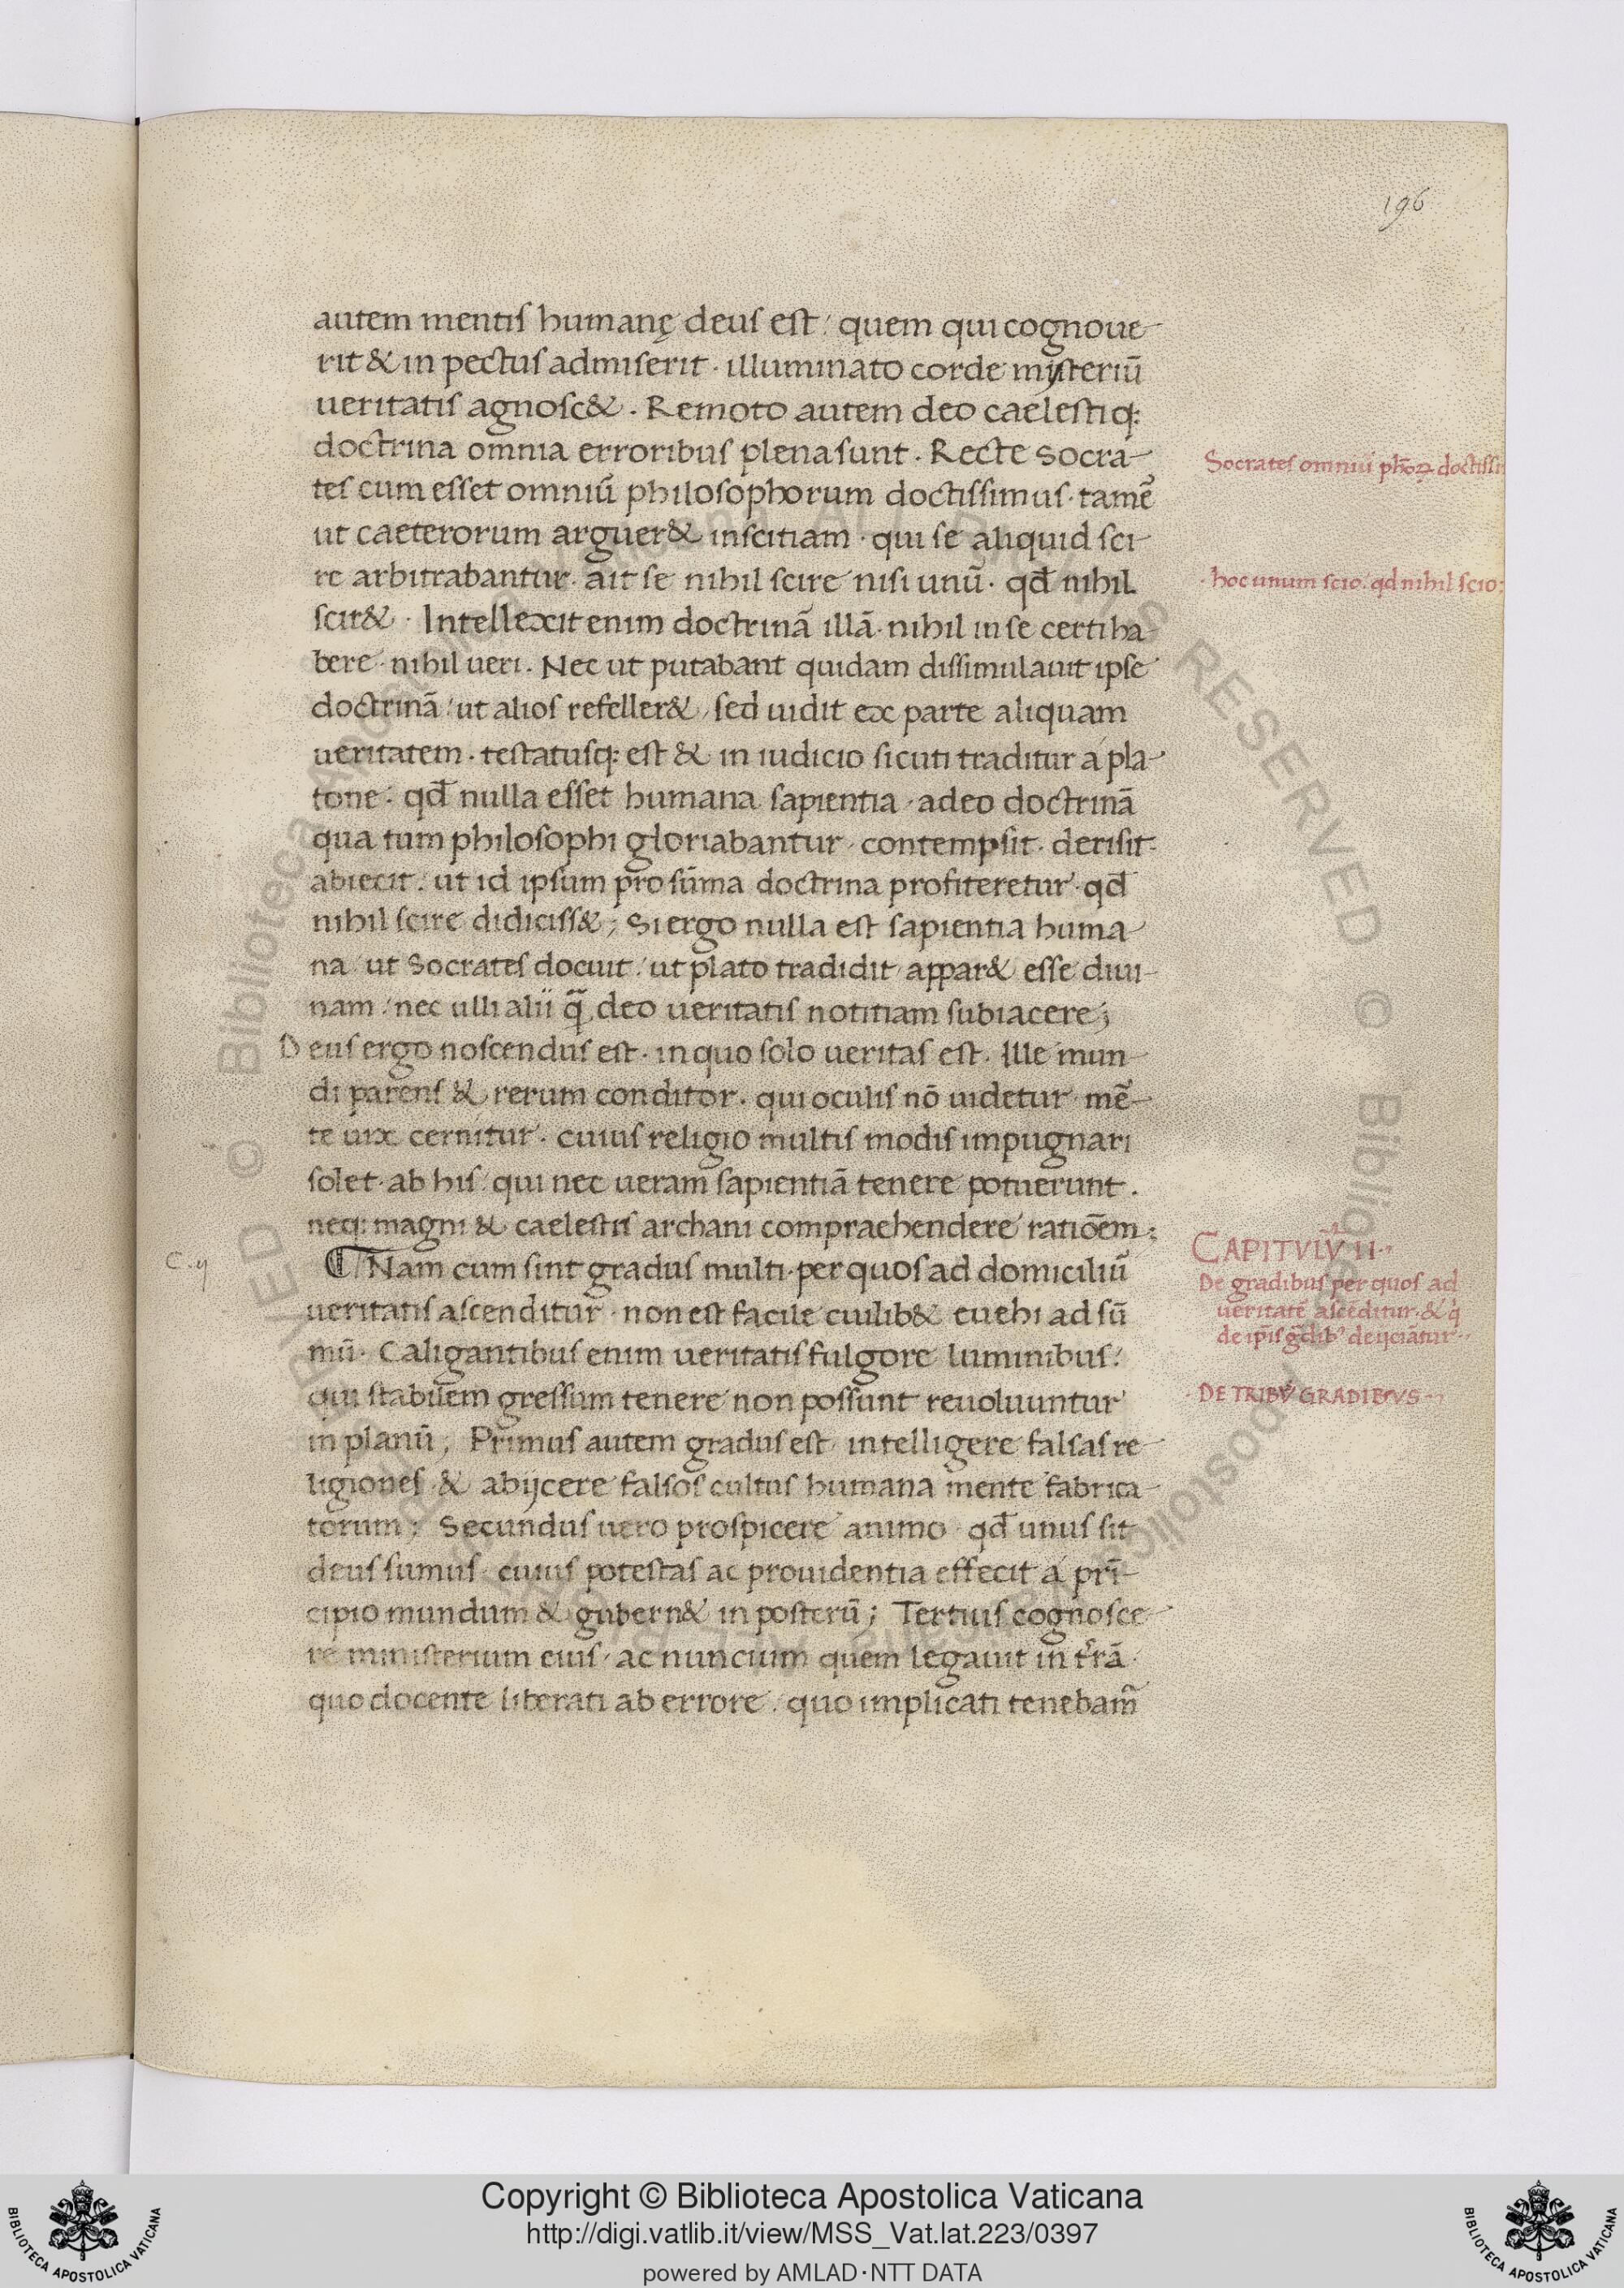 196
autem mentis humanę deus est: quem qui cognoue-
rit & in pectus admiserit · illuminato corde mysteriū
ueritatis agnosc& . Remoto autem deo caelestiq;
doctrina omnia erroribus plena sunt . Recte socra-
tes cum esset omniū philosophorum doctissimus · tamē
ut caeterorum arguer& inscitiam · qui se aliquid sci-
re arbitrabantur · ait se nihil scire nisi unū · qđ nihil
scir& · Intellexit enim doctrinā illā · nihil in se certi ha-
bere · nihil ueri . Nec ut putabant quidam dissimulauit ipse
doctrinā / ut alios refeller& / sed uidit ex parte aliquam
ueritatem · testatusq; est & in iudicio sicuti traditur á pla-
tone: qđ nulla esset humana sapientia · adeo doctrinā
qua tum philosophi gloriabantur · contempsit · derisit ·
abiecit: ut id ipsum pro sūma doctrina profiteretur · qđ
nihil scire didiciss& ; Si ergo nulla est sapientia huma-
na / ut Socrates docuit: ut plato tradidit / appar& esse diui-
nam: nec ulli alii q̃ deo ueritatis notitiam subiacere;
Deus ergo noscendus est · in quo solo ueritas est . Ille mun-
di parens & rerum conditor . qui oculis nō uidetur · mē-
te uix cernitur · cuius religio multis modis impugnari
solet · ab his: qui nec ueram sapientiā tenere potuerunt .
neq; magni & caelestis archani compraehendere ratiōem;
C. ij
¶ Nam cum sint gradus multi · per quos ad domiciliū
ueritatis ascenditur · non est facile cuilib& euehi ad sū
mū · Caligantibus enim ueritatis fulgore luminibus:
qui stabilem gressum tenere non possunt reuoluuntur
in planū; Primus autem gradus est intelligere falsas re-
ligiones & abijcere falsos cultus humana mente fabrica-
torum; Secundus uero prospicere animo qđ unus sit
deus sumus · cuius potestas ac prouidentia effecit á prī-
cipio mundum & gubern& in posterū; Tertius cognosce-
re ministerium eius · ac nuncium quem legauit in t̃rā ·
quo docente liberati ab errore: quo implicati tenebam̃
Socrates omniū ph̄oꝝ doctissi
· hoc unum scio. qđ nihil scio:
CAPITVLṼ II ··
De gradibus per quos ad
ueritatē ascēditur · & q̇
de ip̄is g̃dib⁹ deijciātur ··
· DE TRIBV' GRADIBVS ··
© Biblioteca Apostolica Vaticana ALL RIGHTS RESERVED
Copyright © Biblioteca Apostolica Vaticana
http://digi.vatlib.it/view/MSS_Vat.lat.223/0397
powered by AMLAD·NTT DATA
BIBLIOTECA APOSTOLICA VATICANA
BIBLIOTECA APOSTOLICA VATICANA